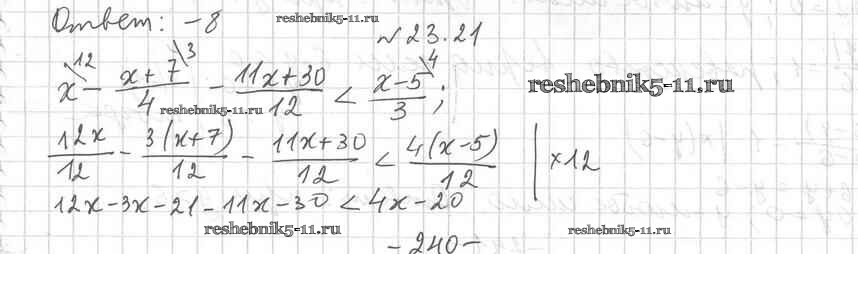 Ответ: -8 reshebnik5-11.ru
№23.21
x\12 - (x+7)/4\3 - (11x+30)/12 < (x-5)/3\4; reshebnik5-11.ru
reshebnik5-11.ru
12x/12 - 3(x+7)/12 - (11x+30)/12 < 4(x-5)/12 | ×12
12x-3x-21-11x-30<4x-20
reshebnik5-11.ru reshebnik5-11.ru
-240-